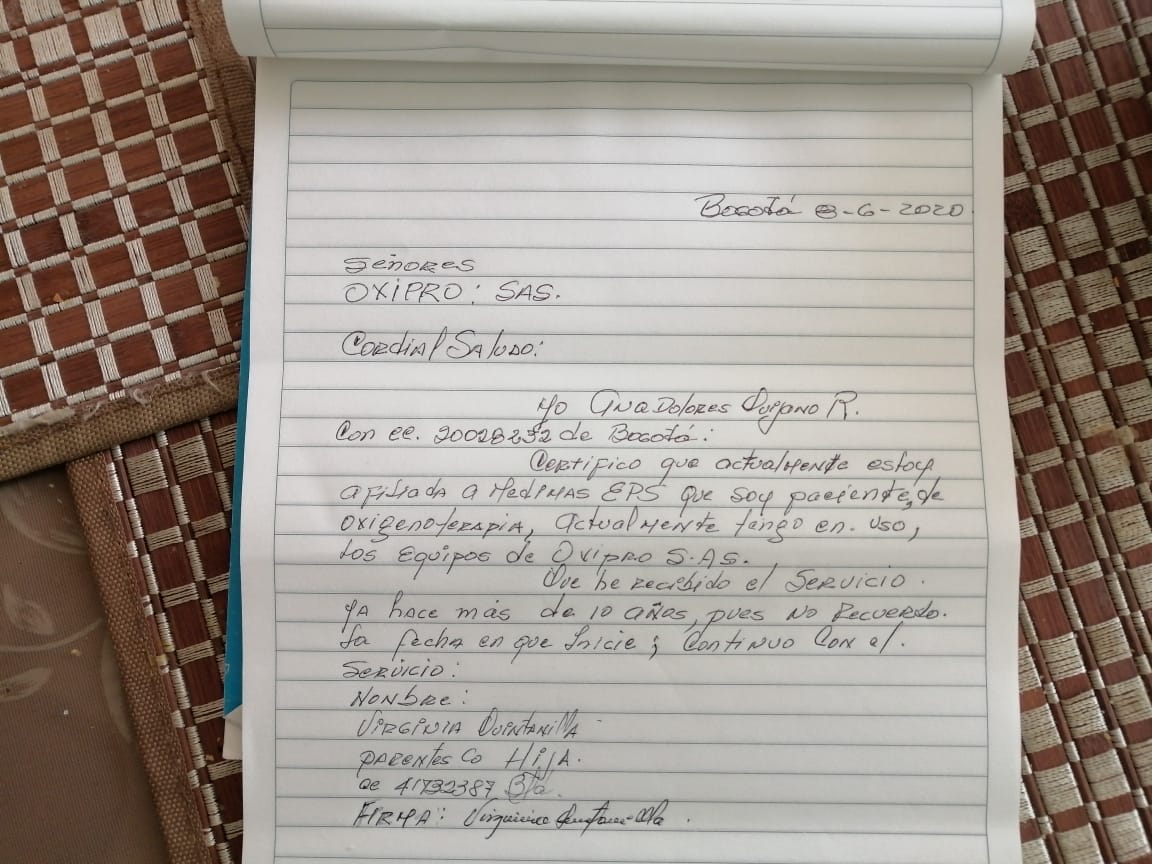 Bogotá 8-6-2020
Señores
OXIPRO: SAS.
Cordial Saludo:
Yo Ana Dolores Quijano R.
Con cc. 20028232 de Bogotá:
Certifico que actualmente estoy
afiliada a Medimas EPS que soy paciente, de
oxigenoterapia, actualmente tengo en. uso,
los equipos de Oxipro S.AS.
Que he recibido el Servicio.
ya hace más de 10 años, pues no Recuerdo.
la fecha en que Inicie; Continuo Con el.
Servicio:
Nonbre:
Virginia Quintanilla
parentesco Hija.
cc 41732387 Bta.
Firma: